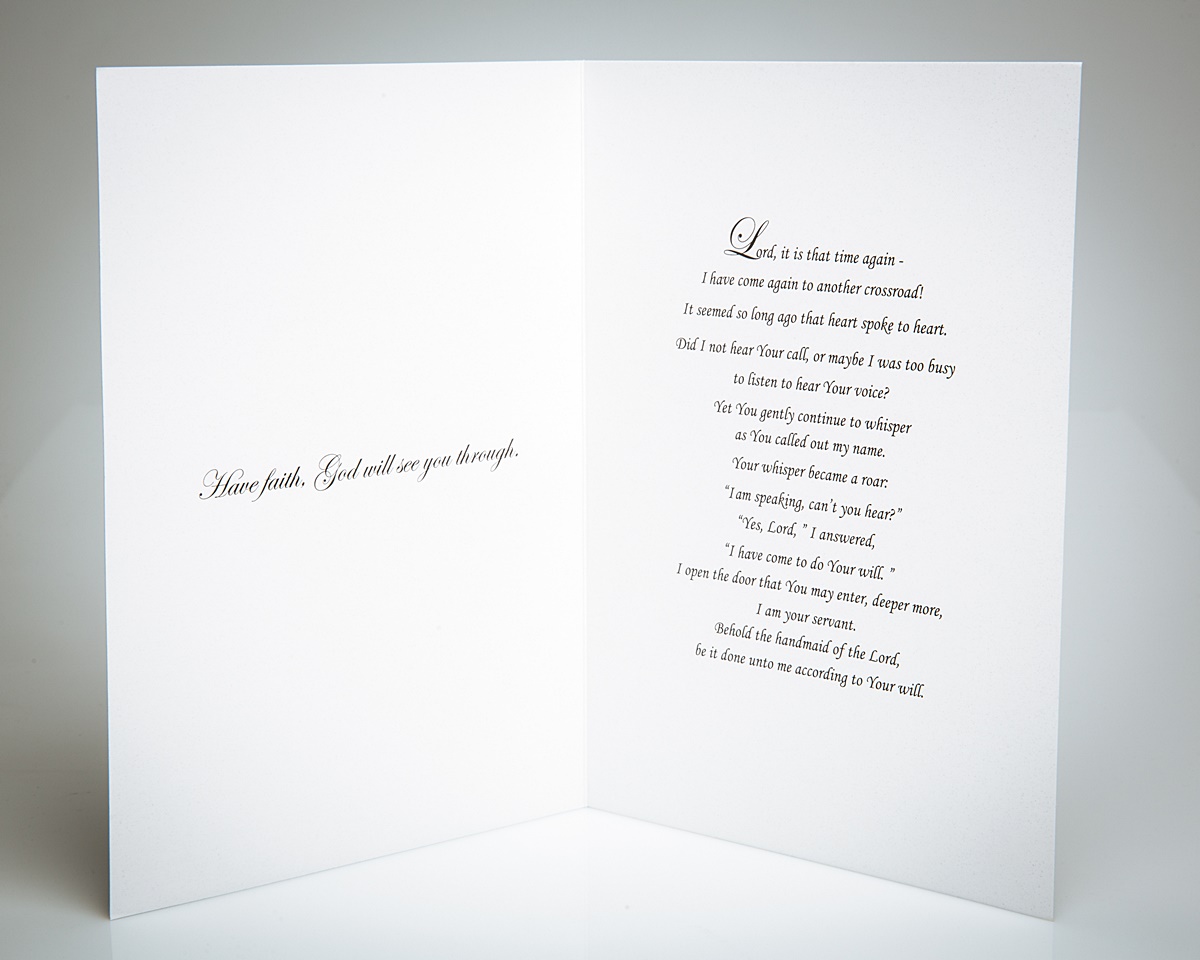 Have faith, God will see you through.
Lord, it is that time again -
I have come again to another crossroad!
It seemed so long ago that heart spoke to heart.
Did I not hear Your call, or maybe I was too busy
to listen to hear Your voice?
Yet You gently continue to whisper
as You called out my name.
Your whisper became a roar:
“I am speaking, can’t you hear?”
“Yes, Lord, ” I answered,
“I have come to do Your will. ”
I open the door that You may enter, deeper more,
I am your servant.
Behold the handmaid of the Lord,
be it done unto me according to Your will.